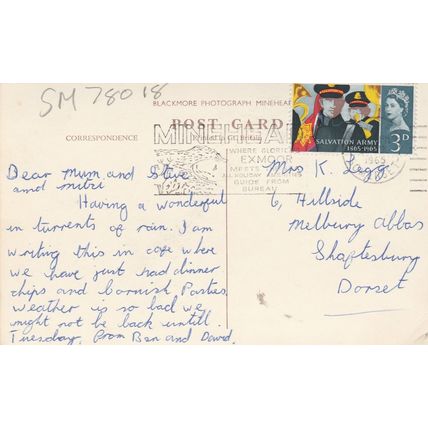 SM 78018
BLACKMORE PHOTOGRAPH MINEHEAD
POST CARD
CORRESPONDENCE
MINEHEAD
WHERE GLORIOUS
EXMOOR
MEETS
ALL HOLIDAY
GUIDE FROM
BUREAU
SALVATION ARMY
1865-1965
3D
1965
Dear Mum and Steve
and mitzi
Having a wonderful
in turrents of rain. I am
writing this in cafe where
we have just had dinner
chips and cornish Pasties
weather is so bad we
might not be back untill
Tuesday, from Ben and David.
Mrs K. Legg.
6, Hillside
Melbury Abbas
Shaftesbury
Dorset